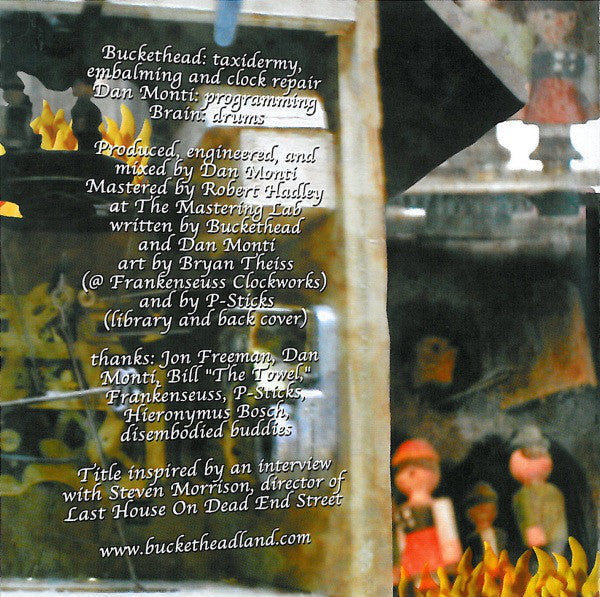 Buckethead: taxidermy,
embalming and clock repair
Dan Monti: programming
Brain: drums
Produced, engineered, and
mixed by Dan Monti
Mastered by Robert Hadley
at The Mastering Lab
written by Buckethead
and Dan Monti
art by Bryan Theiss
(@ Frankenseuss Clockworks)
and by P-Sticks
(library and back cover)
thanks: Jon Freeman, Dan
Monti, Bill "The Towel,"
Frankenseuss, P-Sticks,
Hieronymus Bosch,
disembodied buddies
Title inspired by an interview
with Steven Morrison, director of
Last House On Dead End Street
www.bucketheadland.com